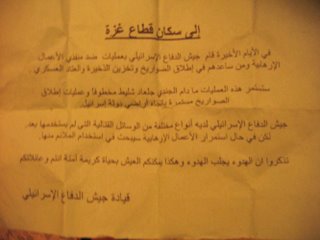 إلى سكان قطاع غزة
في الأيام الأخيرة قام جيش الدفاع الإسرائيلي بعمليات ضد منفذي الأعمال
الإرهابية ومن ساعدهم في إطلاق الصواريخ وتخزين الذخيرة والعتاد العسكري.
ستستمر هذه العمليات ما دام الجندي جلعاد شليط مخطوفا وعمليات إطلاق
الصواريخ مستمرة باتجاه أراضي دولة إسرائيل.
جيش الدفاع الإسرائيلي لديه أنواع مختلفة من الوسائل القتالية التي لم يستخدمها بعد.
لكن في حال استمرار الأعمال الإرهابية سيبحث في استخدام الملائم منها.
تذكروا ان الهدوء يجلب الهدوء وهكذا يمكنكم العيش بحياة كريمة آمنة انتم وعائلاتكم
قيادة جيش الدفاع الإسرائيلي